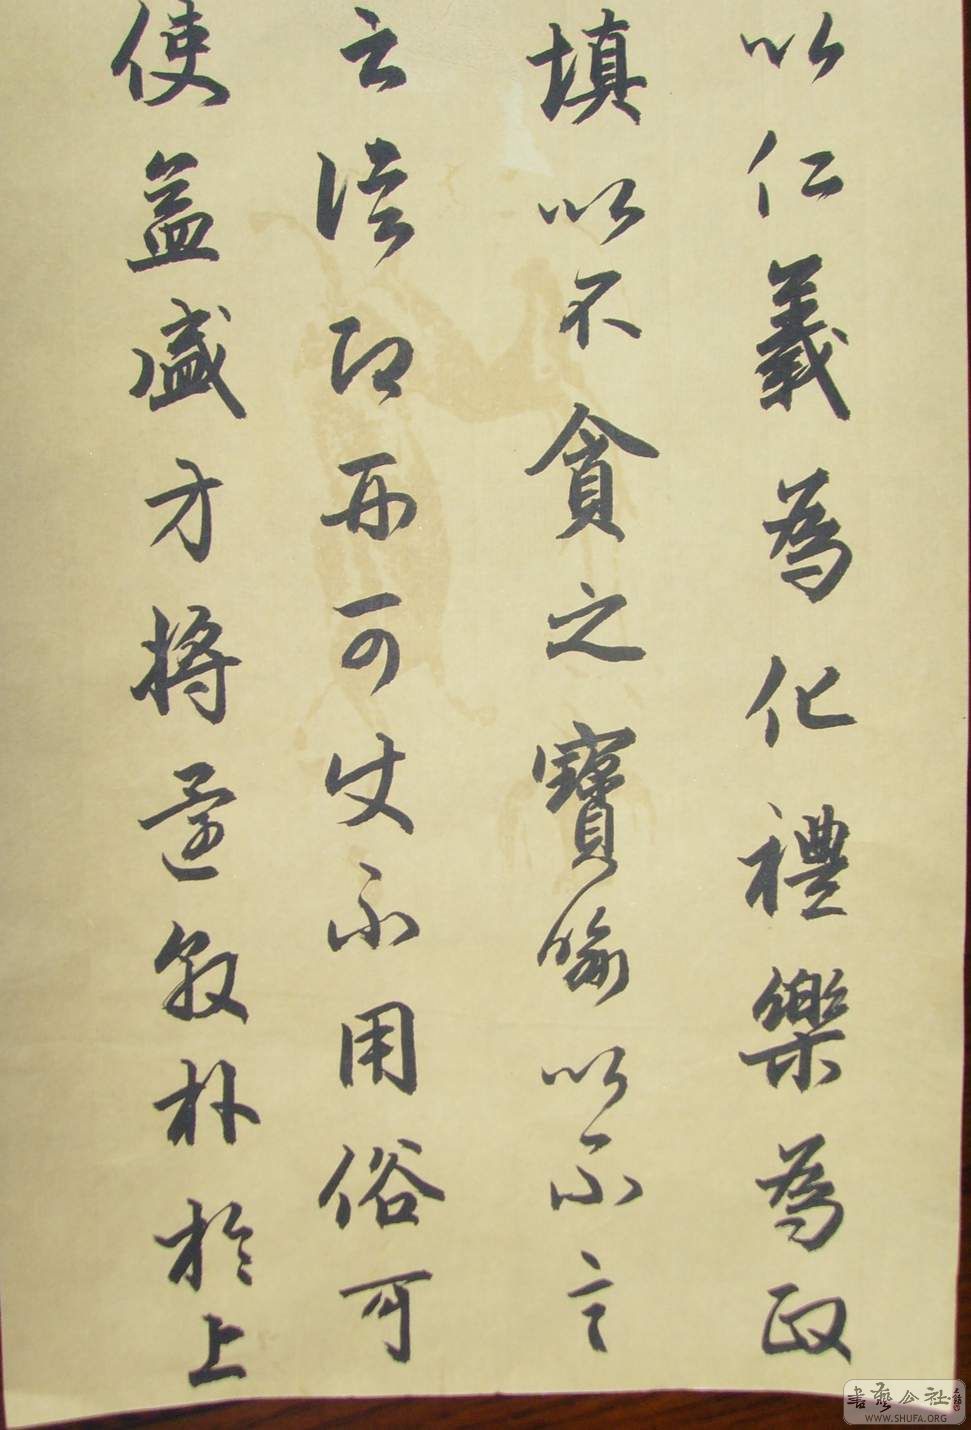 以仁義為化禮樂為政
填以不貪之寶喻以不言
云信即可不用俗可
使益盛方將還敦朴於上
書藝公社
WWW.SHUFA.ORG